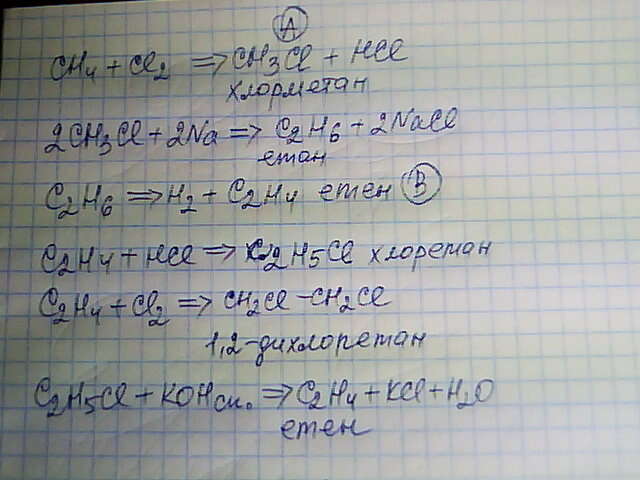 A
CH4 + Cl2 => CH3Cl + HCl
хлорметан
2CH3Cl + 2Na => C2H6 + 2NaCl
етан
C2H6 => H2 + C2H4 етен B
C2H4 + HCl => C2H5Cl хлоретан
C2H4 + Cl2 => CH2Cl - CH2Cl
1,2-дихлоретан
C2H5Cl + KOH сп. => C2H4 + KCl + H2O
етен